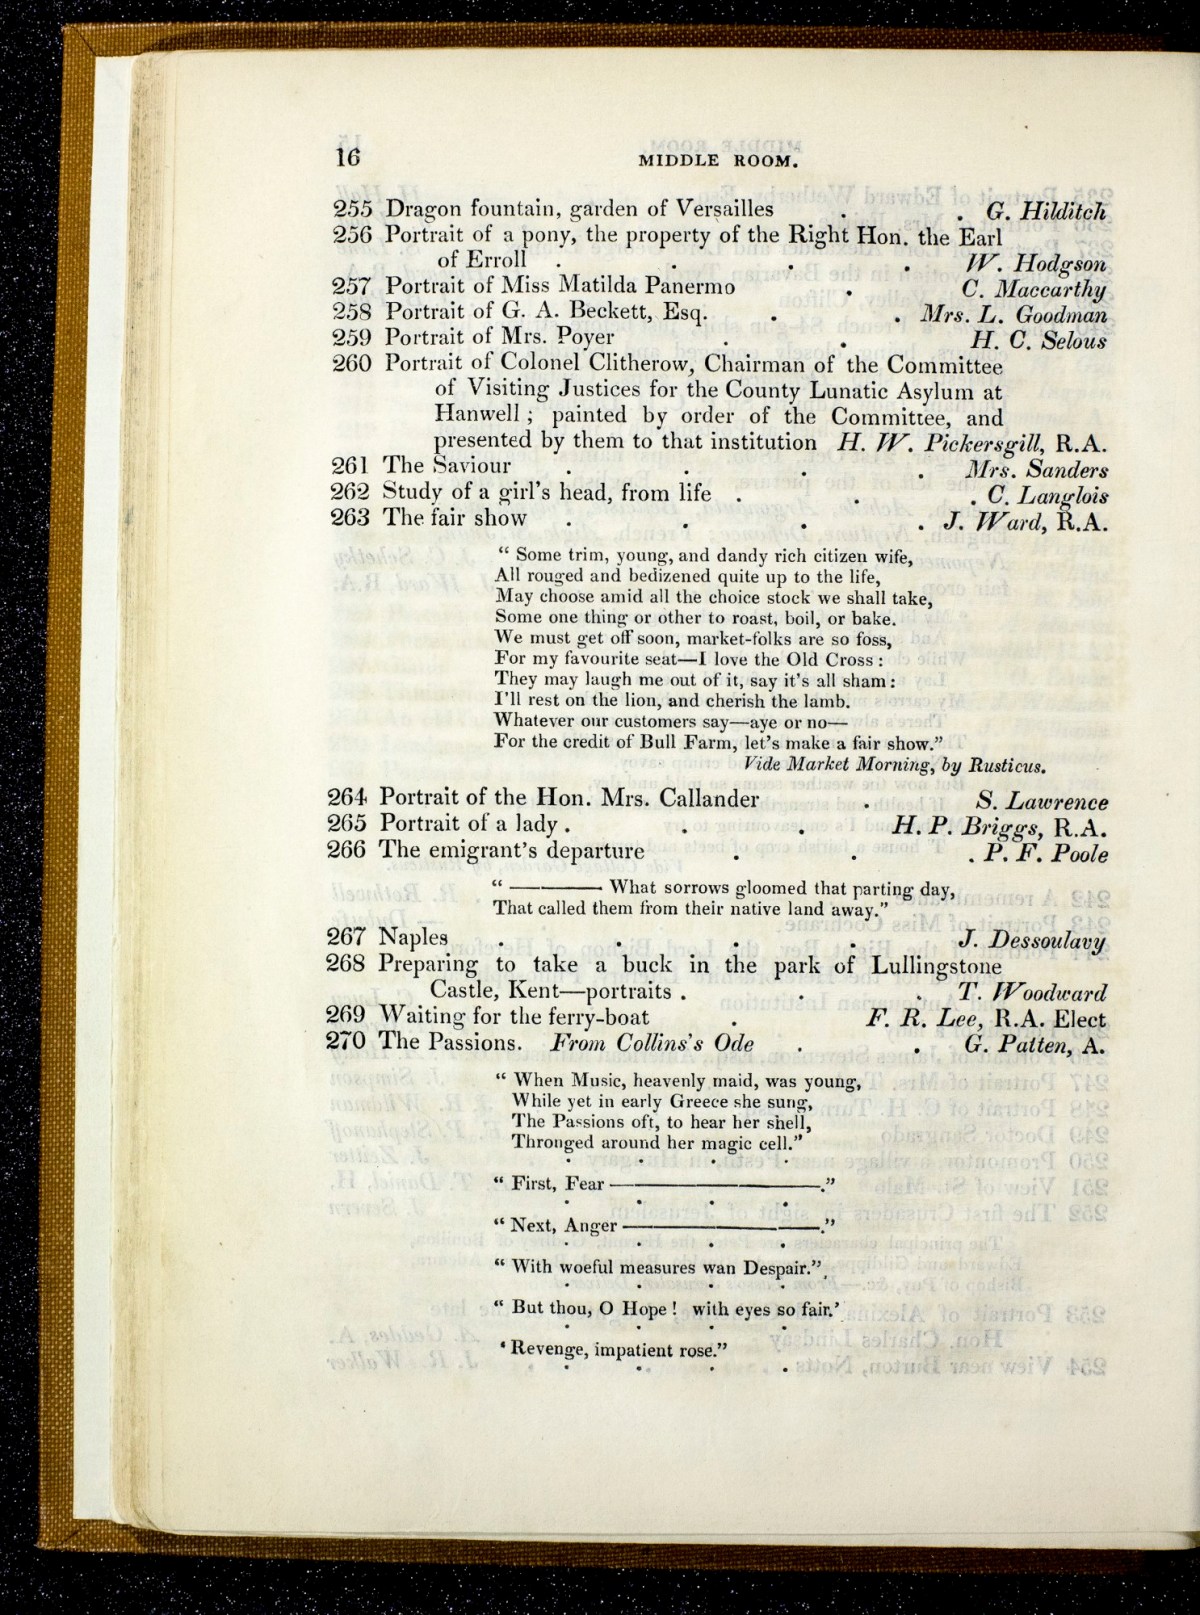 16 MIDDLE ROOM.
255 Dragon fountain, garden of Versailles . . G. Hilditch
256 Portrait of a pony, the property of the Right Hon. the Earl
of Erroll . . . . W. Hodgson
257 Portrait of Miss Matilda Panermo . C. Maccarthy
258 Portrait of G. A. Beckett, Esq. . . Mrs. L. Goodman
259 Portrait of Mrs. Poyer . . H. C. Selous
260 Portrait of Colonel Clitherow, Chairman of the Committee
of Visiting Justices for the County Lunatic Asylum at
Hanwell; painted by order of the Committee, and
presented by them to that institution H. W. Pickersgill, R.A.
261 The Saviour . . . . Mrs. Sanders
262 Study of a girl's head, from life . . . C. Langlois
263 The fair show . . . . J. Ward, R.A.
“ Some trim, young, and dandy rich citizen wife,
All rouged and bedizened quite up to the life,
May choose amid all the choice stock we shall take,
Some one thing or other to roast, boil, or bake.
We must get off soon, market-folks are so foss,
For my favourite seat—I love the Old Cross :
They may laugh me out of it, say it's all sham :
I'll rest on the lion, and cherish the lamb.
Whatever our customers say—aye or no—
For the credit of Bull Farm, let's make a fair show.”
Vide Market Morning, by Rusticus.
264 Portrait of the Hon. Mrs. Callander . S. Lawrence
265 Portrait of a lady . . . H. P. Briggs, R.A.
266 The emigrant's departure . . . P. F. Poole
“ ———— What sorrows gloomed that parting day,
That called them from their native land away.”
267 Naples . . . . J. Dessoulavy
268 Preparing to take a buck in the park of Lullingstone
Castle, Kent—portraits . . . T. Woodward
269 Waiting for the ferry-boat . F. R. Lee, R.A. Elect
270 The Passions. From Collins's Ode . . G. Patten, A.
“ When Music, heavenly maid, was young,
While yet in early Greece she sung,
The Passions oft, to hear her shell,
Thronged around her magic cell.”
. . . .
“ First, Fear ——————————.”
. . . .
“ Next, Anger ——————————.”
. . . .
“ With woeful measures wan Despair.”
. . . .
“ But thou, O Hope ! with eyes so fair.'
. . . .
‘ Revenge, impatient rose.”
. . . .